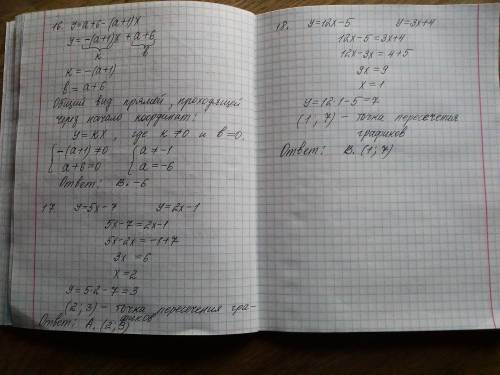 16. y=a+6-(a+1)x
y=-(a+1)x+a+6
к в
к=-(a+1)
в=a+6
Общий вид прямей, проходящей
через начало координат:
y=кx, где к≠0 и в=0.
{-(a+1)≠0 {a≠-1
a+6=0 a=-6
Ответ: В. -6
17. y=5x-7 y=2x-1
5x-7=2x-1
5x-2x=-1+7
3x=6
x=2
y=5·2-7=3
(2;3) - точка пересечения гра-
фиков
Ответ: А. (2;3)
18. y=12x-5 y=3x+4
12x-5=3x+4
12x-3x=4+5
9x=9
x=1
y=12·1-5=7
(1;7) - точка пересечения
графиков
Ответ: В. (1;7)